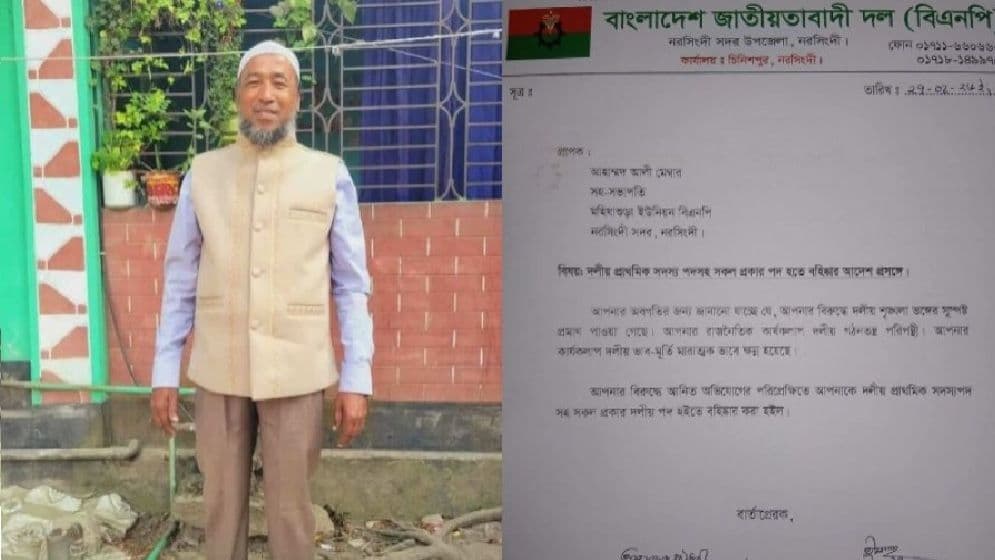 বাংলাদেশ জাতীয়তাবাদী দল (বিএনপি)
নরসিংদী সদর উপজেলা, নরসিংদী।
ফোন ০১৭১১-৬৬০৬৬
কার্যালয় ঃ চিনিশপুর, নরসিংদী।
০১৭১৮-১৪৯৯৭
সূত্র ঃ
তারিখ ঃ
প্রাপক :
আলী মেম্বার
সহ-সভাপতি
মহিষাশুড়া ইউনিয়ন বিএনপি
নরসিংদী সদর, নরসিংদী।
বিষয়: দলীয় প্রাথমিক সদস্য পদসহ সকল প্রকার পদ হতে বহিষ্কার আদেশ প্রসঙ্গে।
আপনার অবগতির জন্য জানানো যাচ্ছে যে, আপনার বিরুদ্ধে দলীয় শৃঙ্খলা ভঙ্গের সুস্পষ্ট
প্রমাণ পাওয়া গেছে। আপনার রাজনৈতিক কার্যকলাপ দলীয় গঠনতন্ত্র পরিপন্থী। আপনার
কার্যকলাপ দলীয় ভাব-মূর্তি মারাত্মক ভাবে ক্ষুন্ন হয়েছে।
আপনার বিরুদ্ধে আনিত অভিযোগের পরিপ্রেক্ষিতে আপনাকে দলীয় প্রাথমিক সদস্যপদ
সহ সকল প্রকার দলীয় পদ হইতে বহিষ্কার করা হইল।
বার্তাপ্রেরক,